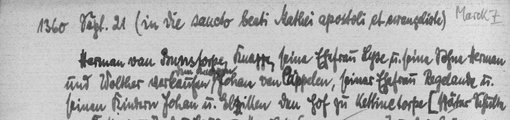 1360 Sept. 21 (in die sancto beati Mathei apostoli et evangeliste) Marck I
Herman van Brunstorpe, Knappe, seine Ehefrau Elyse u. seine Söhne Herman
und Wolther verkaufen dem Knappen Johan van Cappelen, seiner Ehefrau Regelande u.
seinen Kindern Johan u. den Hof zu Kettinctorpe [später Schulte